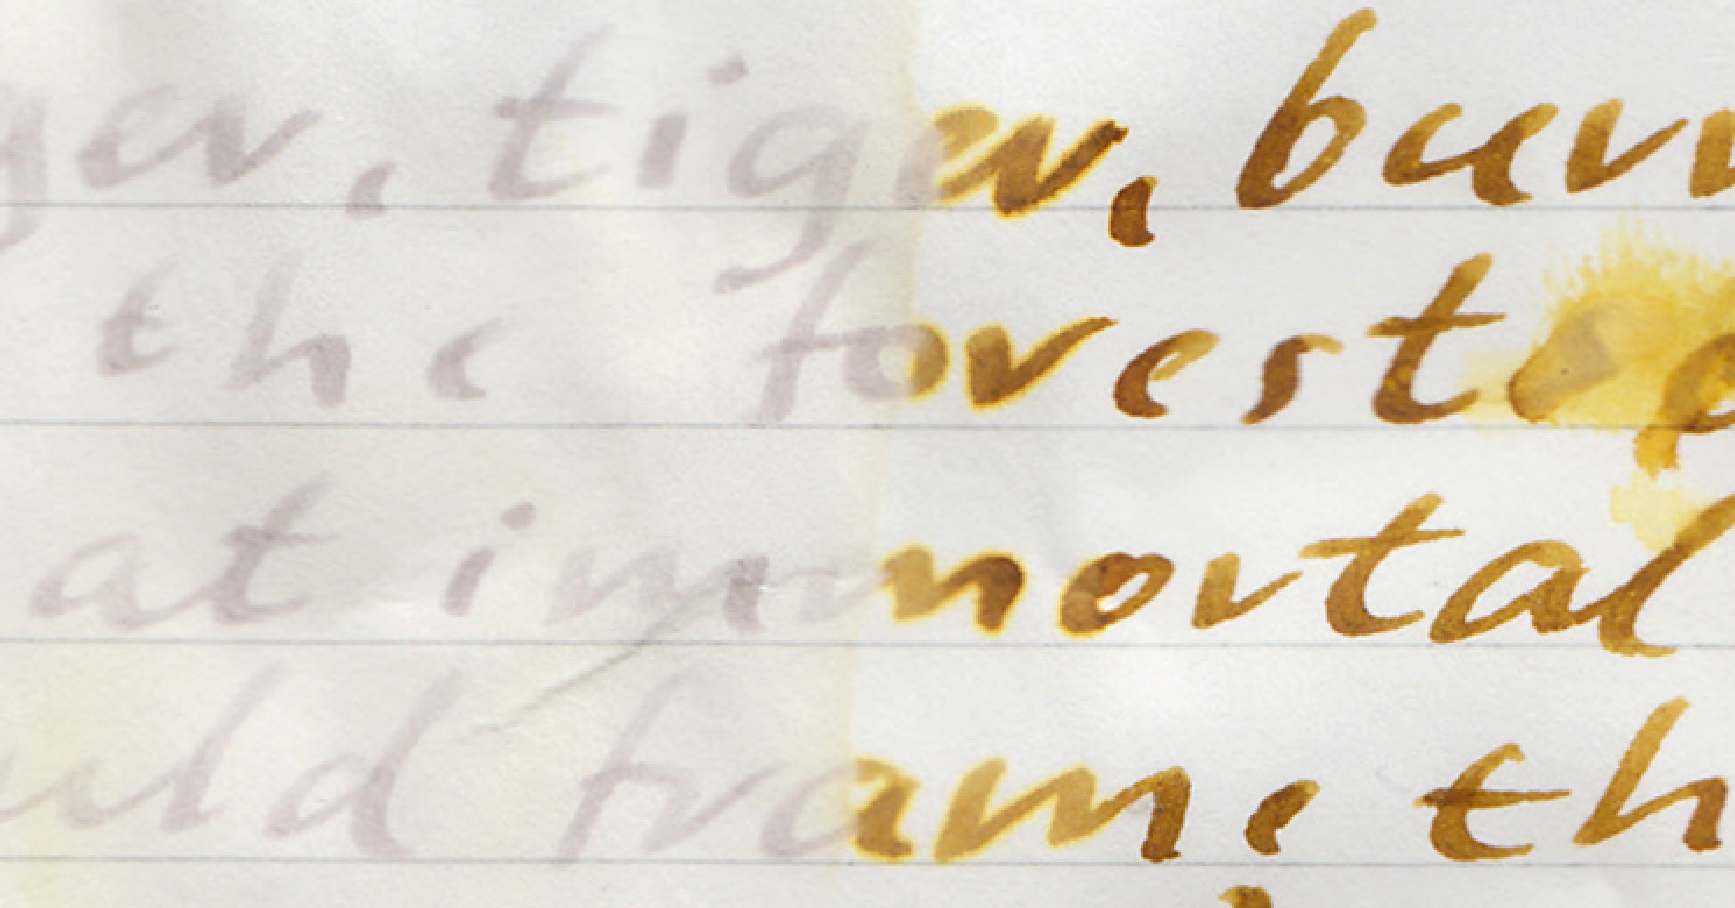 ger, tiger, burn
the forests o
at immortal
uld frame th